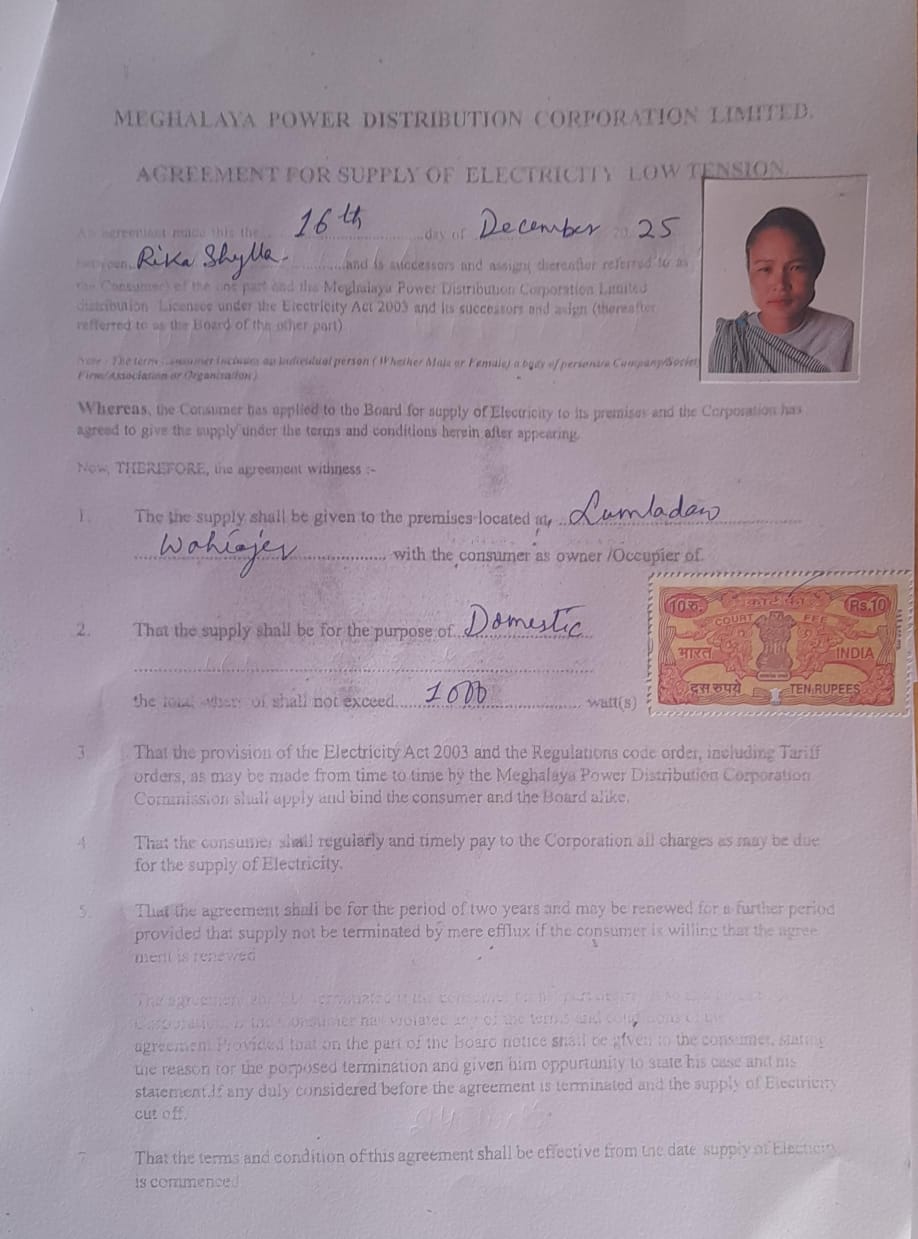 MEGHALAYA POWER DISTRIBUTION CORPORATION LIMITED.
AGREEMENT FOR SUPPLY OF ELECTRICITY LOW TENSION
An agreement made this the 16th day of December 2025
between Rika Shylla and is successors and assign; thereafter referred to as
the Consumer) of the one part and the Meghalaya Power Distribution Corporation Limited
distribution Licensee under the Electricity Act 2003 and its successors and asign (thereafter
refferred to as the Board of the other part)
Note : The term Consumer includes an individual person ( Whether Male or Female) a body of persons a Company/Society
Firm/Association or Organization)
Whereas, the Consumer has applied to the Board for supply of Electricity to its premises and the Corporation has
agreed to give the supply under the terms and conditions herein after appearing.
Now, THEREFORE, the agreement withness :-
1. The the supply shall be given to the premises located at, Lumladaw
Wahiajer with the consumer as owner /Occupier of.
2. That the supply shall be for the purpose of Domestic
10 रु. कोर्ट फी Rs.10
COURT FEE
भारत INDIA
दस रुपये TEN RUPEES
the total of shall not exceed 1000 watt(s)
3. That the provision of the Electricity Act 2003 and the Regulations code order, including Tariff
orders, as may be made from time to time by the Meghalaya Power Distribution Corporation
Commission shall apply and bind the consumer and the Board alike.
4 That the consumer shall regularly and timely pay to the Corporation all charges as may be due
for the supply of Electricity.
5. That the agreement shall be for the period of two years and may be renewed for a further period
provided that supply not be terminated by mere efflux if the consumer is willing that the agree
ment is renewed
The agreement terminated if the consumer
Corporation is the Consumer has violated any of the terms and conditions of the
agreement Provided that on the part of the Board notice shall be given to the consumer, stating
the reason for the porposed termination and given him oppurtunity to state his case and his
statement.If any duly considered before the agreement is terminated and the supply of Electricity
cut off.
7 That the terms and condition of this agreement shall be effective from the date supply of Electicity
is commenced